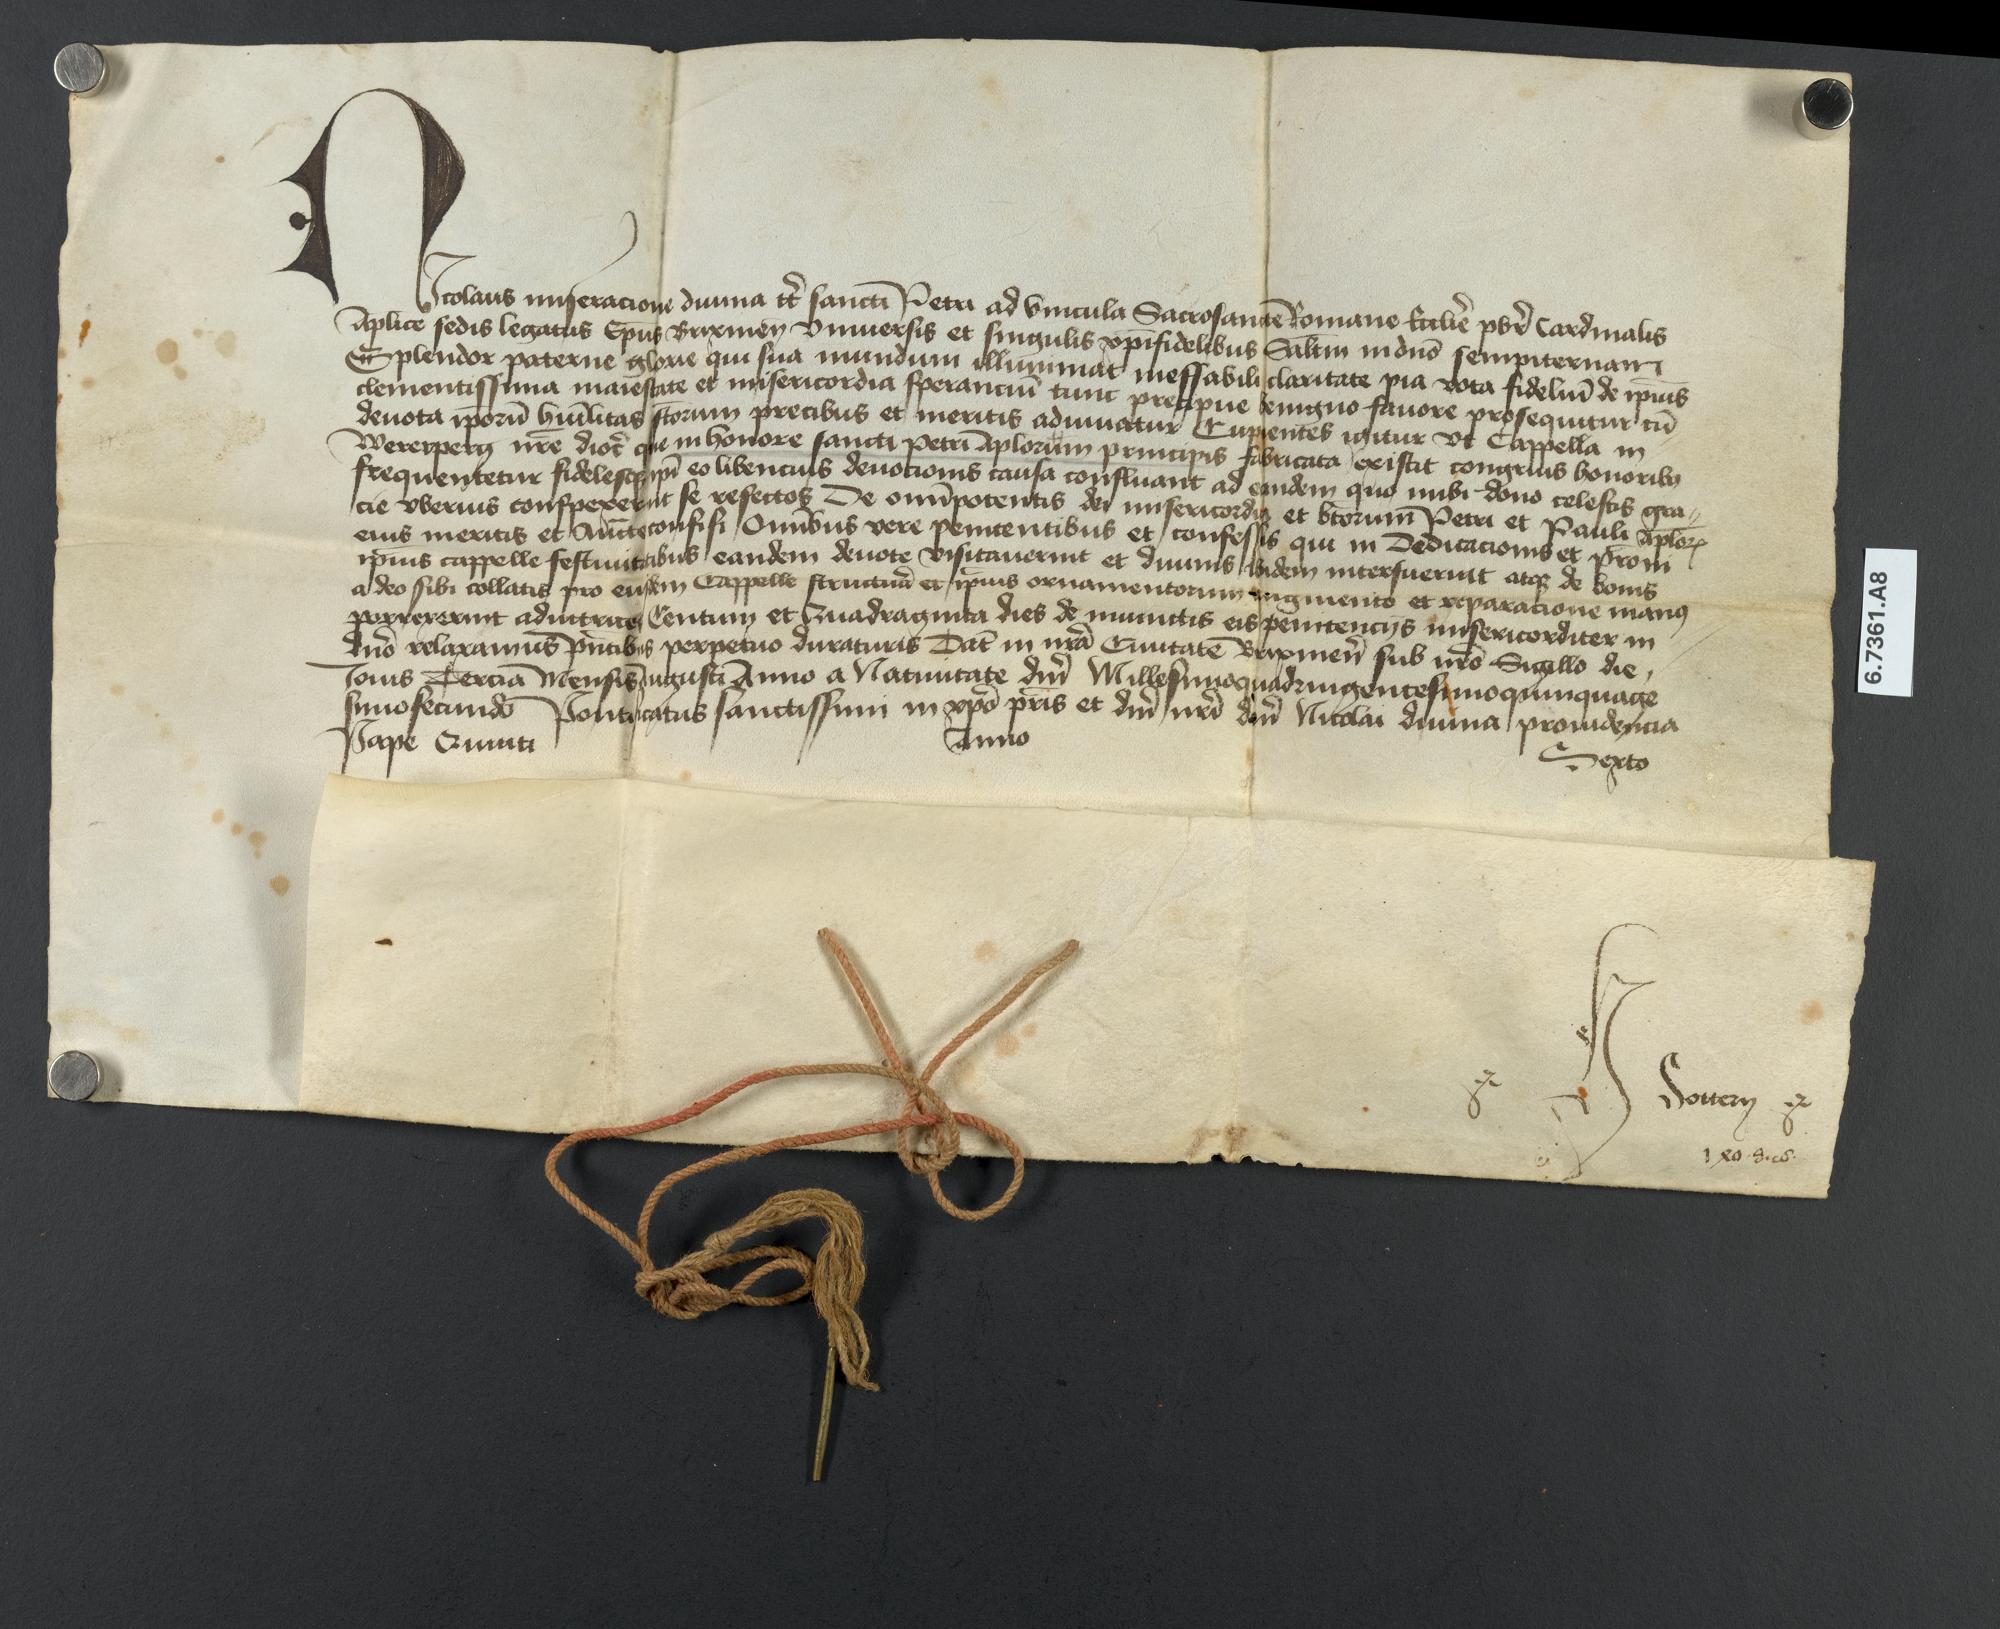 Nicolaus miseracione diuina tt̄ sancti Petri ad vincula Sacrosancte Romane Ecclīe pb̄r Cardinalis
Aplice sedis legatus Ep̄us Brixineñ Vniuersis et singulis xp̄ifidelibus Salt̄m in dn̄o sempiternam
Splendor paterne glorie qui sua mundum illuminat ineffabili claritate pia vota fideliū de ip̄ius
clementissima maiestate et misericordia sperancium tunc precipue benigno fauore prosequitur cū
deuota ip̄orū humilitas sc̄torum precibus et meritis adiuuatur Cupientes igitur vt Cappella in
Wererperg nr̄e dioc̄ que in honore sancti Petri Aplorum principis fabricata existit congruis honoribꝯ
frequentetur fidelesqꝫ ip̄i eo libencius deuocionis causa confluant ad eandem quo inibi dono celestis gra
cie vberius conspexerint se refectos De omīpotentis dei misericordia et bt̄orum Petri et Pauli Aplorꝝ
eius meritis et Auc̄te confisi Omībus vere penitentibus et confessis qui in Dedicacionis et pr̄oni
ip̄ius cappelle festiuitatibus eandem deuote visitauerint et diuinis ibidem interfuerint atqꝫ de bonis
a deo sibi collatis pro eiusdem Cappelle structura et ip̄ius ornamentorum augmento et reparacione manꝯ
porrexerint adiutrices Centum et Quadraginta dies de iniunctis eis penitencijs misericorditer in
dn̄o relaxamus pn̄tibus perpetuo duraturis Dat̄ in nr̄a Ciuitate Brixineñ sub nr̄o Sigillo die
Iouis Tercia Mensis Augusti Anno a Natiuitate dn̄i Millesimoquadringentesimoquinquage
simosecundo Pontificatus sanctissimi in xp̄o pr̄is et dn̄i nr̄i dn̄i Nicolai diuina prouidencia
Pape Quinti Anno Sexto
H Pottern
6.7361.A8